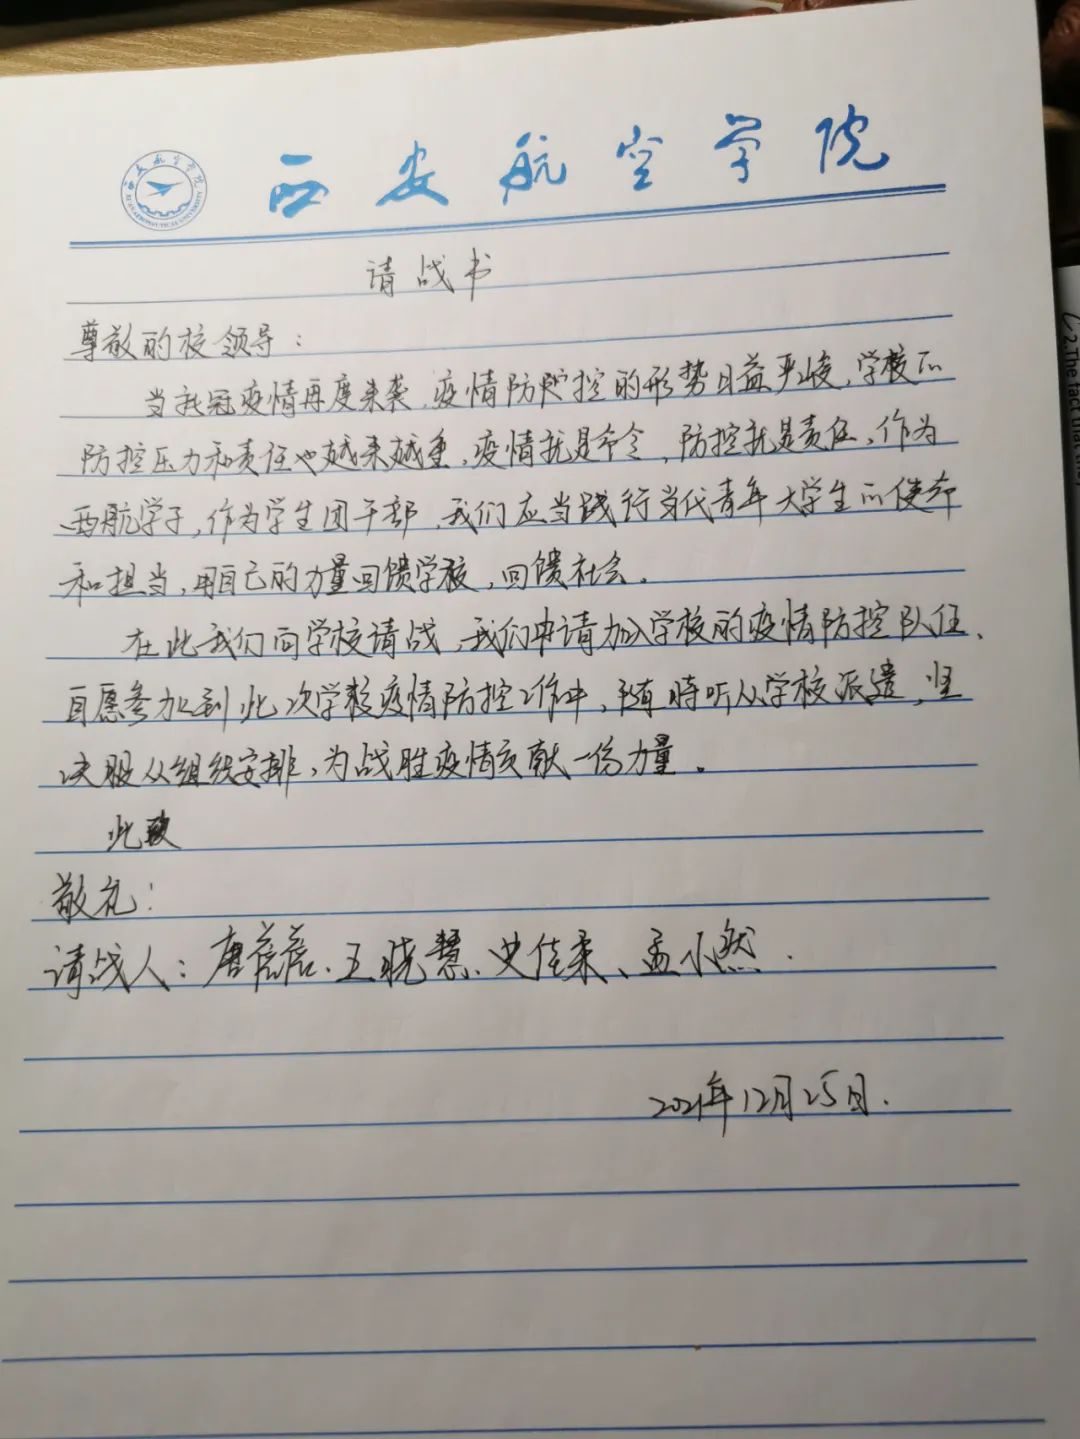 西安航空学院
请战书
尊敬的校领导：
当新冠疫情再度来袭，疫情防控的形势日益严峻，学校的
防控压力和责任也越来越重，疫情就是命令，防控就是责任，作为
西航学子，作为学生团干部，我们应当践行当代青年大学生的使命
和担当，用自己的力量回馈学校，回馈社会。
在此我们向学校请战，我们申请加入学校的疫情防控队伍、
自愿参加到此次学校疫情防控工作中，随时听从学校派遣，坚
决服从组织安排，为战胜疫情贡献一份力量。
此致
敬礼！
请战人：唐蓓蓓、王晓慧、史佳柔、孟小然.
2021年12月25日.
2.The fact that they